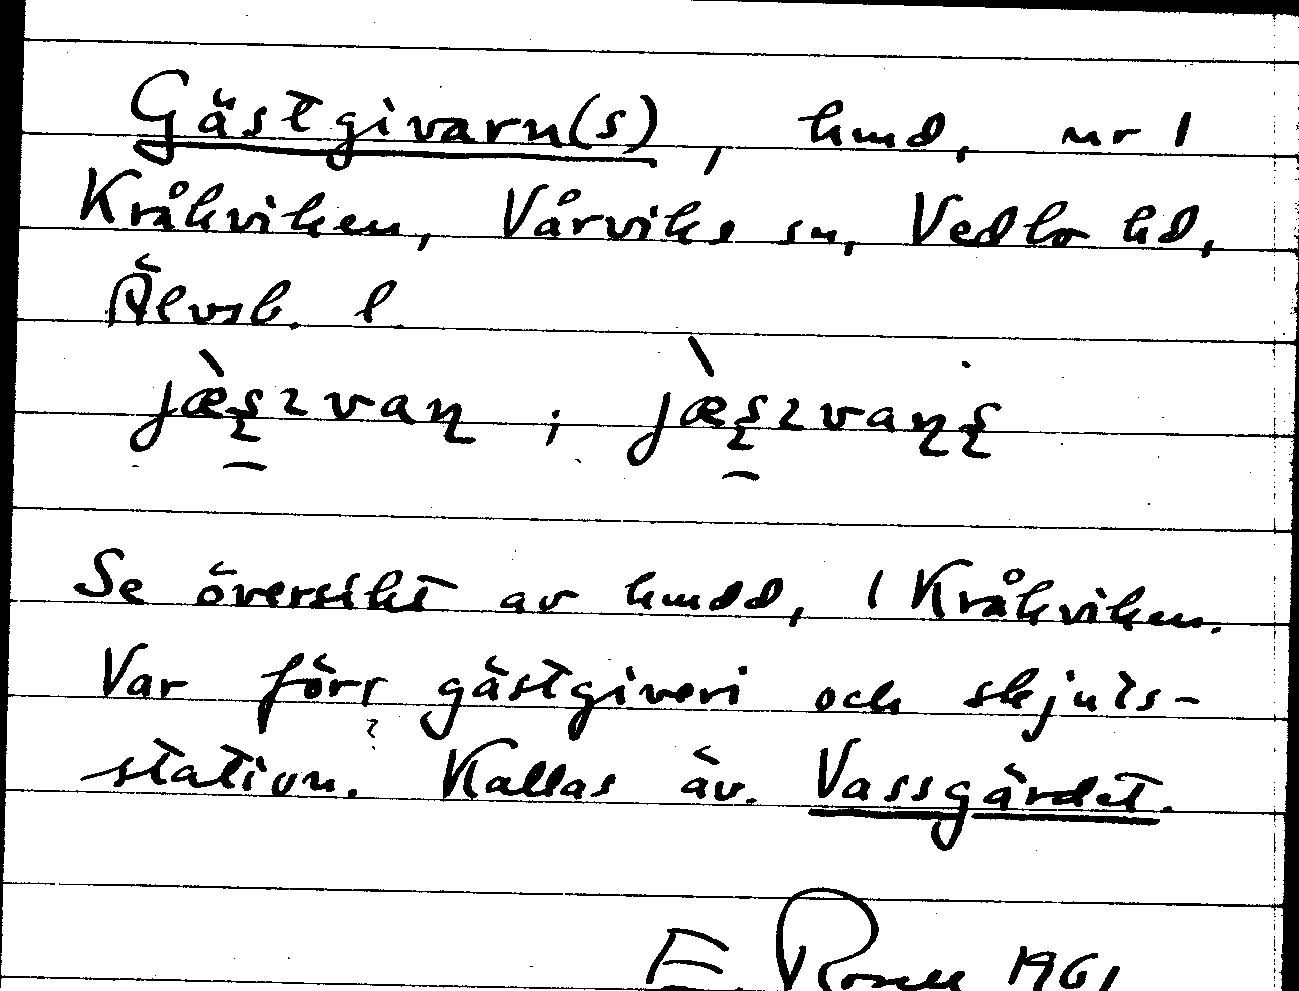 Gästgivarn(s), hmd, nr 1
Kråkviken, Vårviks sn, Vedbo hd,
Älvsb. l.
Se översikt av hmdd, 1 Kråkviken.
Var förr gästgiveri och skjuts-
station. Kallas äv. Vassgärdet.
E. Rosell 1961